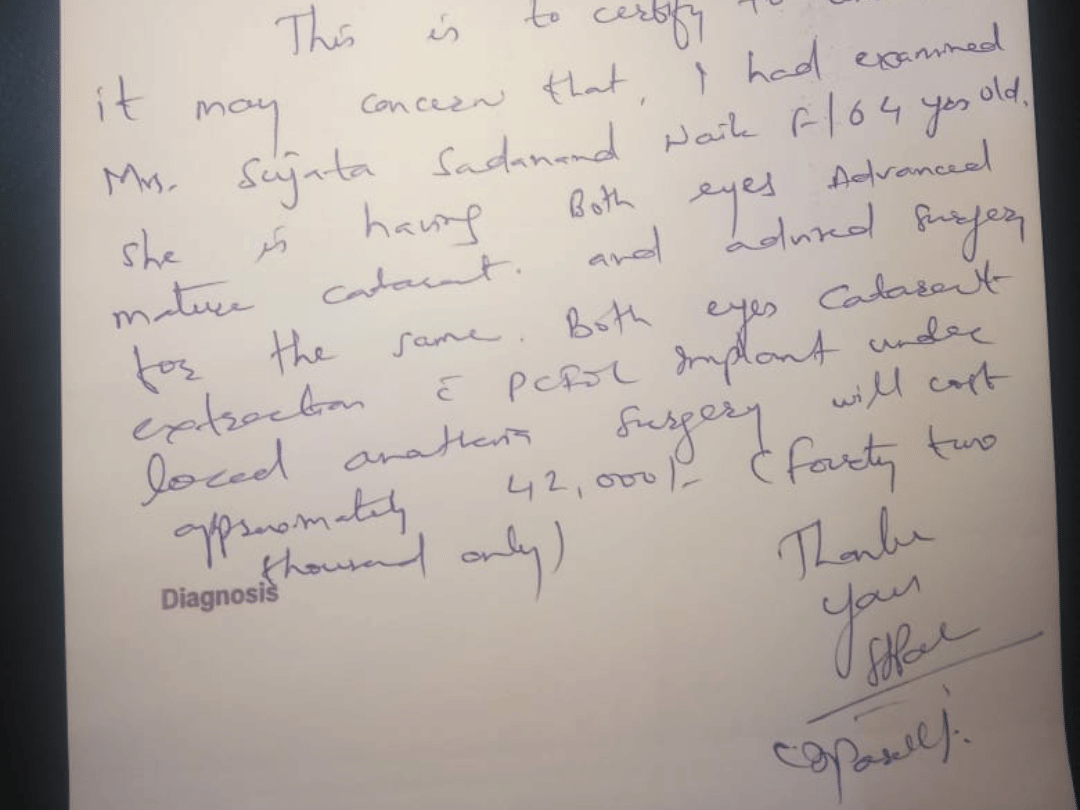 This is to certify to
it may concern that, I had examined
Mrs. Sujata Sadanand Naik F/64 yrs old.
she is having Both eyes Advanced
mature cataract. and advised surgery
for the same. Both eyes Cataract
extraction c̄ PCIOL Implant under
local anathesia surgery will cost
approximately 42,000/- (fourty two
thousand only)
Diagnosis
Thanks
your